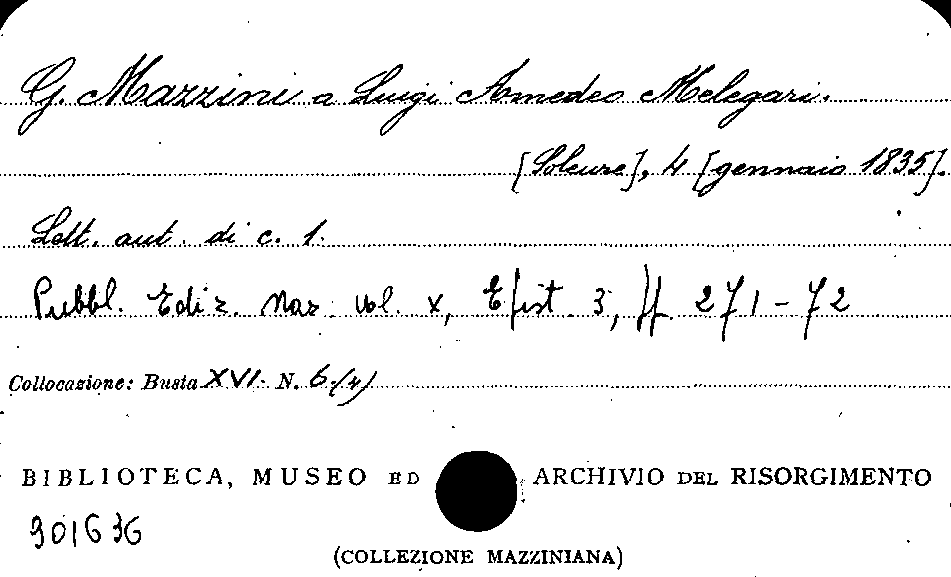 G. Mazzini a Luigi Amedeo Melegari.
[Soleure], 4 [gennaio 1835].
Lett. aut. di c. 1.
Pubbl. Ediz. Naz. vol. X, Epist. 3, pp. 271-72
Collocazione: Busta XVI. N. 6 (4)
BIBLIOTECA, MUSEO ED ARCHIVIO DEL RISORGIMENTO
301636
(COLLEZIONE MAZZINIANA)